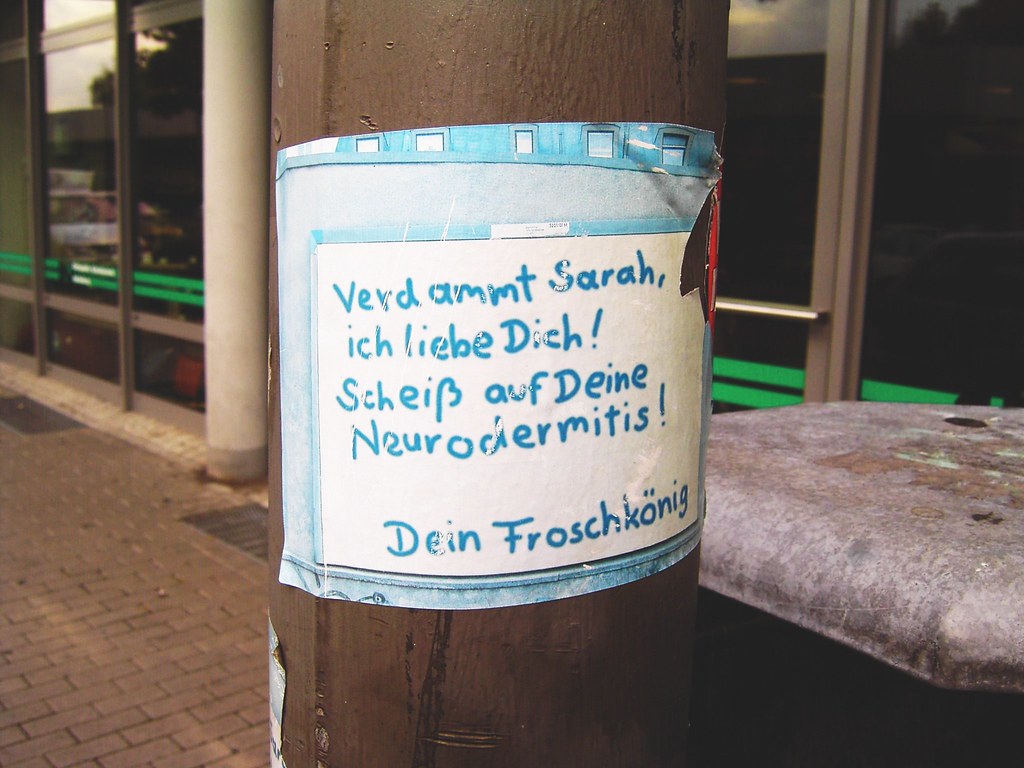 Verdammt Sarah,
ich liebe Dich!
Scheiß auf Deine
Neurodermitis!
Dein Froschkönig